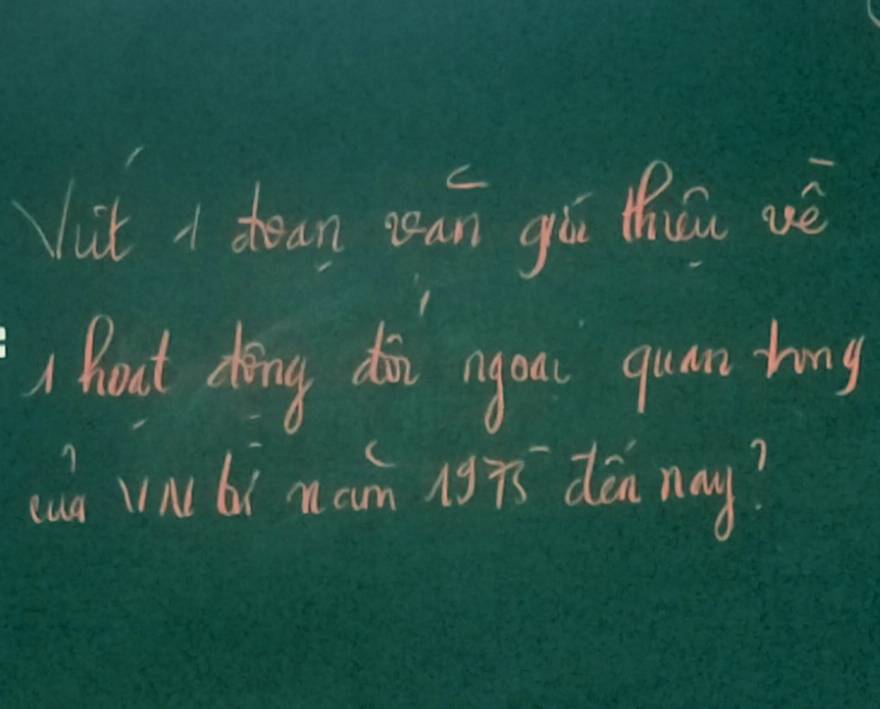 Viết 1 đoạn văn giới thiệu về
1 hoạt động đối ngoại quan trọng
của VN từ năm 1975 đến nay?